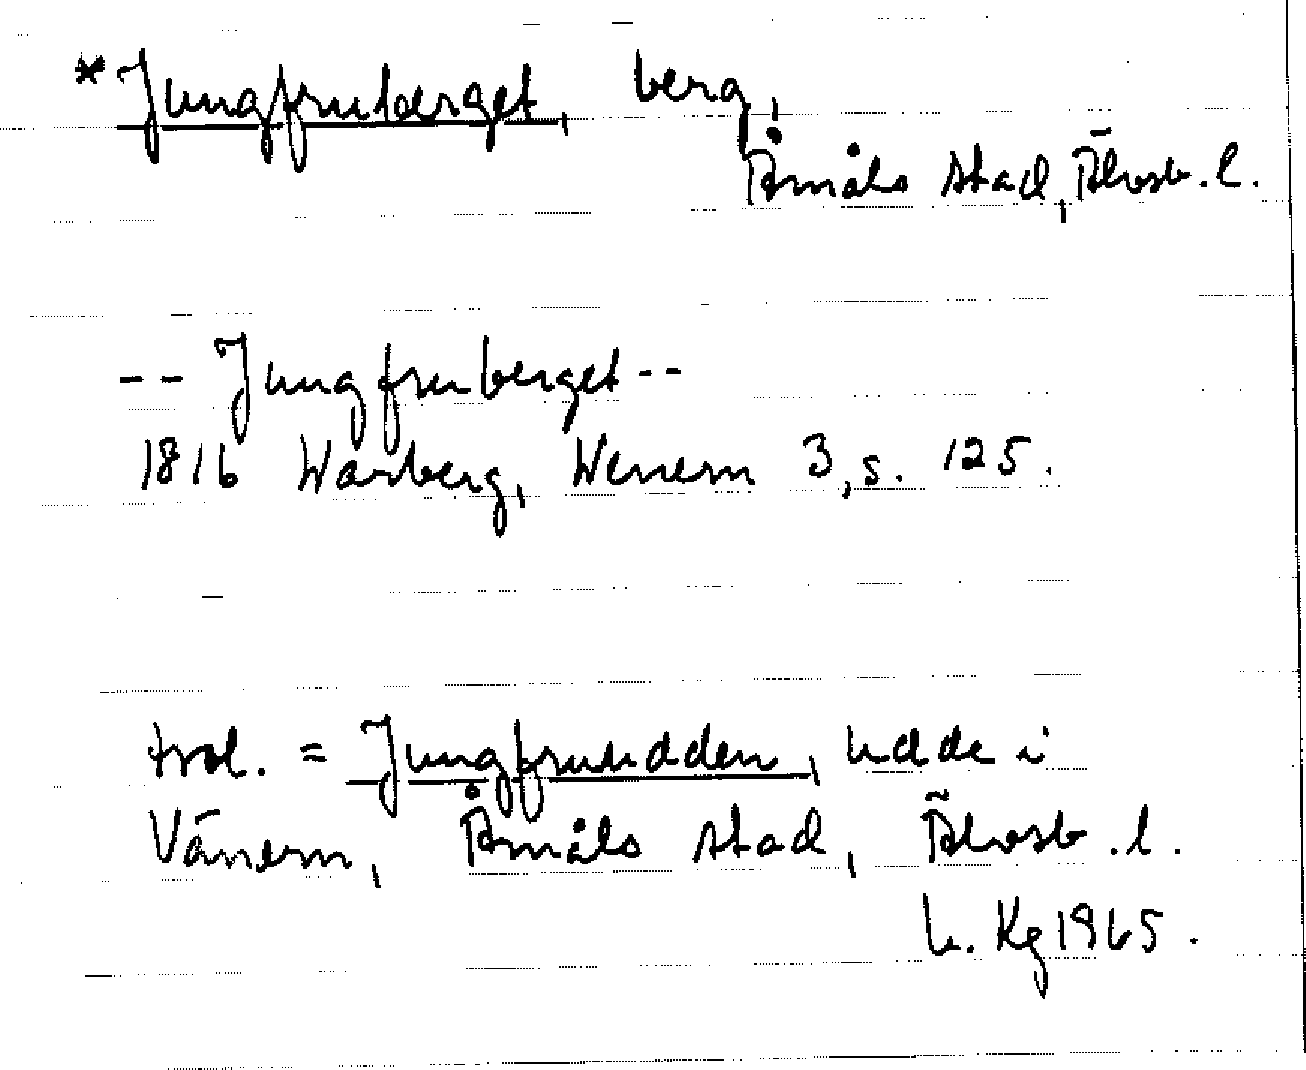 *Jungfruberget, berg,
Åmåls stad, Älvsb. l.
-- Jungfruberget --
1816 Warberg, Wenern 3, s. 125.
trol. = Jungfruudden, udde i
Vänern, Åmåls stad, Älvsb. l.
Kg 1965.